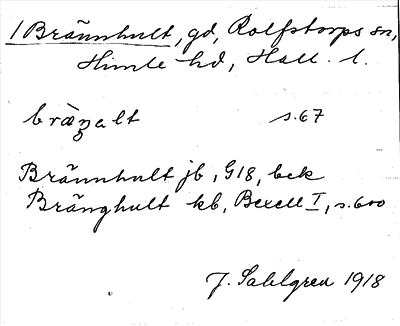 1 Brännhult, gd, Rolfstorps sn,
Himle hd, Hall. l.
bräŋalt s.67
Brännhult jb, G18, bek
Bränghult kb, Bexell I, s.600
J. Sahlgren 1918